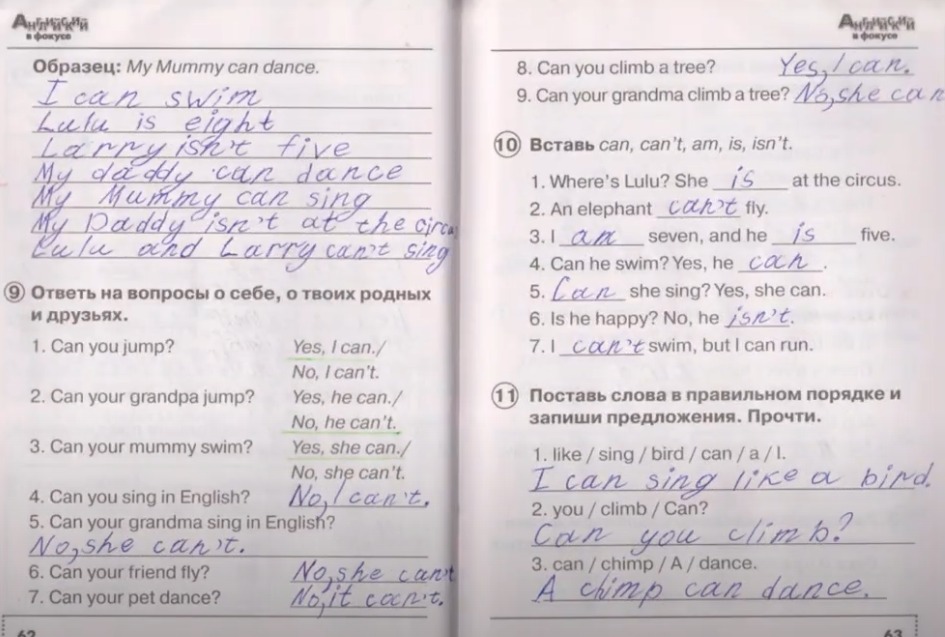 Английский
в фокусе
Образец: My Mummy can dance.
I can swim
Lulu is eight
Larry isn't five
My daddy can dance
My Mummy can sing
My Daddy isn't at the circu
Lulu and Larry can't sing
9 Ответь на вопросы о себе, о твоих родных
и друзьях.
1. Can you jump? Yes, I can./
No, I can't.
2. Can your grandpa jump? Yes, he can./
No, he can't.
3. Can your mummy swim? Yes, she can./
No, she can't.
4. Can you sing in English? No, I can't.
5. Can your grandma sing in English?
No, she can't.
6. Can your friend fly? No, she can't
7. Can your pet dance? No, it can't.
62
Английский
в фокусе
8. Can you climb a tree? Yes, I can.
9. Can your grandma climb a tree? No, she can
10 Вставь can, can't, am, is, isn't.
1. Where's Lulu? She is at the circus.
2. An elephant can't fly.
3. I am seven, and he is five.
4. Can he swim? Yes, he can.
5. Can she sing? Yes, she can.
6. Is he happy? No, he isn't.
7. I can't swim, but I can run.
11 Поставь слова в правильном порядке и
запиши предложения. Прочти.
1. like / sing / bird / can / a / I.
I can sing like a bird.
2. you / climb / Can?
Can you climb?
3. can / chimp / A / dance.
A chimp can dance.
63